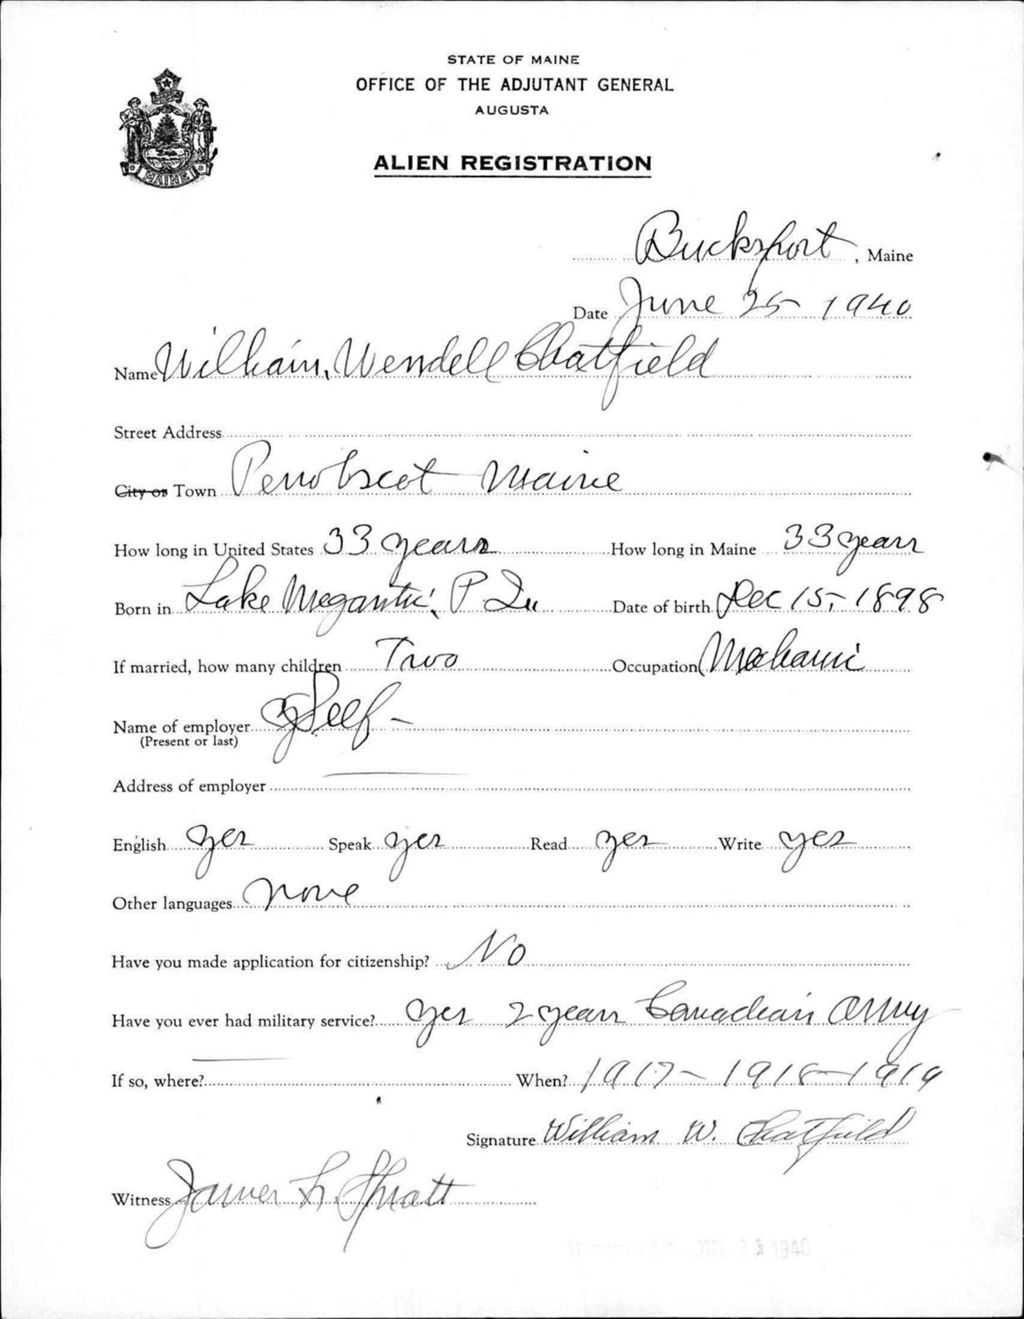 STATE OF MAINE
OFFICE OF THE ADJUTANT GENERAL
AUGUSTA
ALIEN REGISTRATION
MAINE
Bucksport, Maine
Date June 25 1940
Name William, Wendell Chatfield
Street Address
City or Town Penobscot Maine
How long in United States 33 years How long in Maine 33 years
Born in Lake Megantic, P Qu Date of birth Dec 15, 1898
If married, how many children Two Occupation Mechanic
Name of employer Self -
(Present or last)
Address of employer
English yes Speak yes Read yes Write yes
Other languages none
Have you made application for citizenship? No
Have you ever had military service? yes 2 years Canadian Army
If so, where? When? 1917 - 1918 - 1919
Signature William W. Chatfield
Witness James L. Spratt
1940